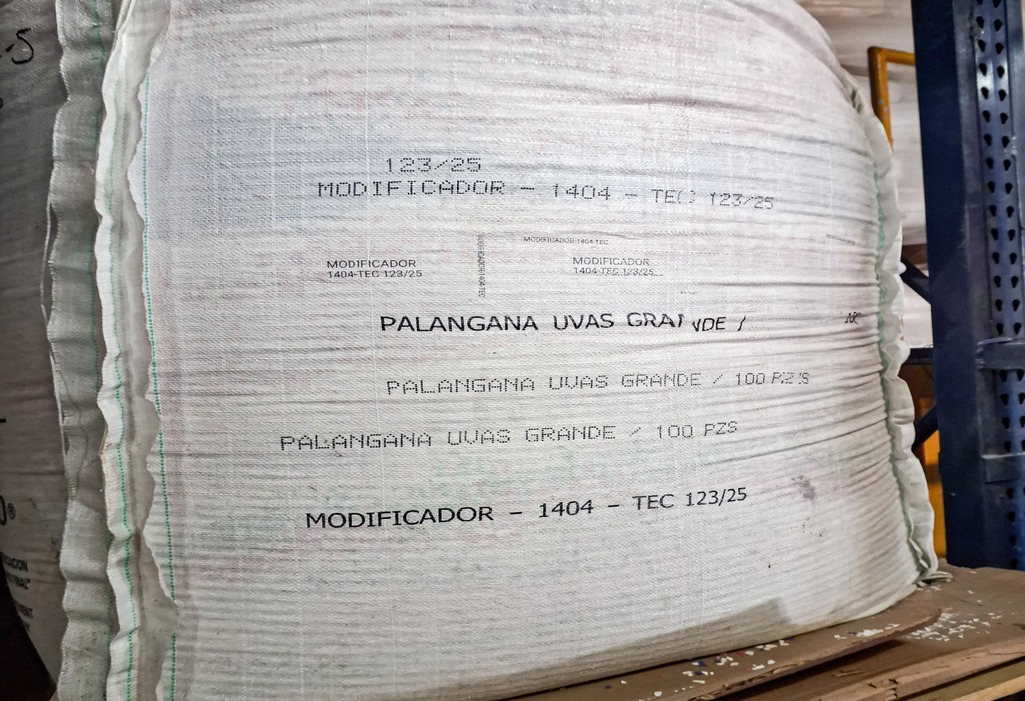 -5
123/25
MODIFICADOR - 1404 - TEC 123/25
MODIFICADOR 1404-TEC
MODIFICADOR
1404-TEC 123/25
MODIFICADOR
1404-TEC 123/25
PALANGANA UVAS GRANDE /
PALANGANA UVAS GRANDE / 100 PZS
PALANGANA UVAS GRANDE / 100 PZS
MODIFICADOR - 1404 - TEC 123/25